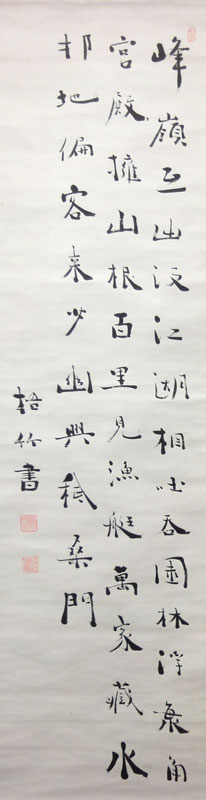 峰嶺互出沒江湖相吐吞園林浮角
宮殿擁山根百里見漁艇萬家藏水
邨地偏客来少幽興秖桑門
梧竹書